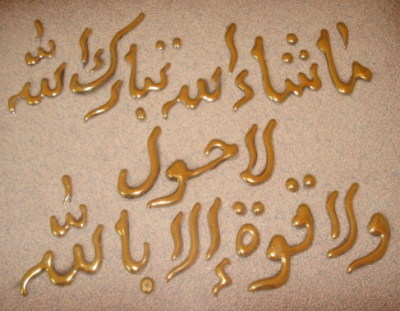 ما شاء الله تبارك الله
لا حول
ولا قوة إلا بالله